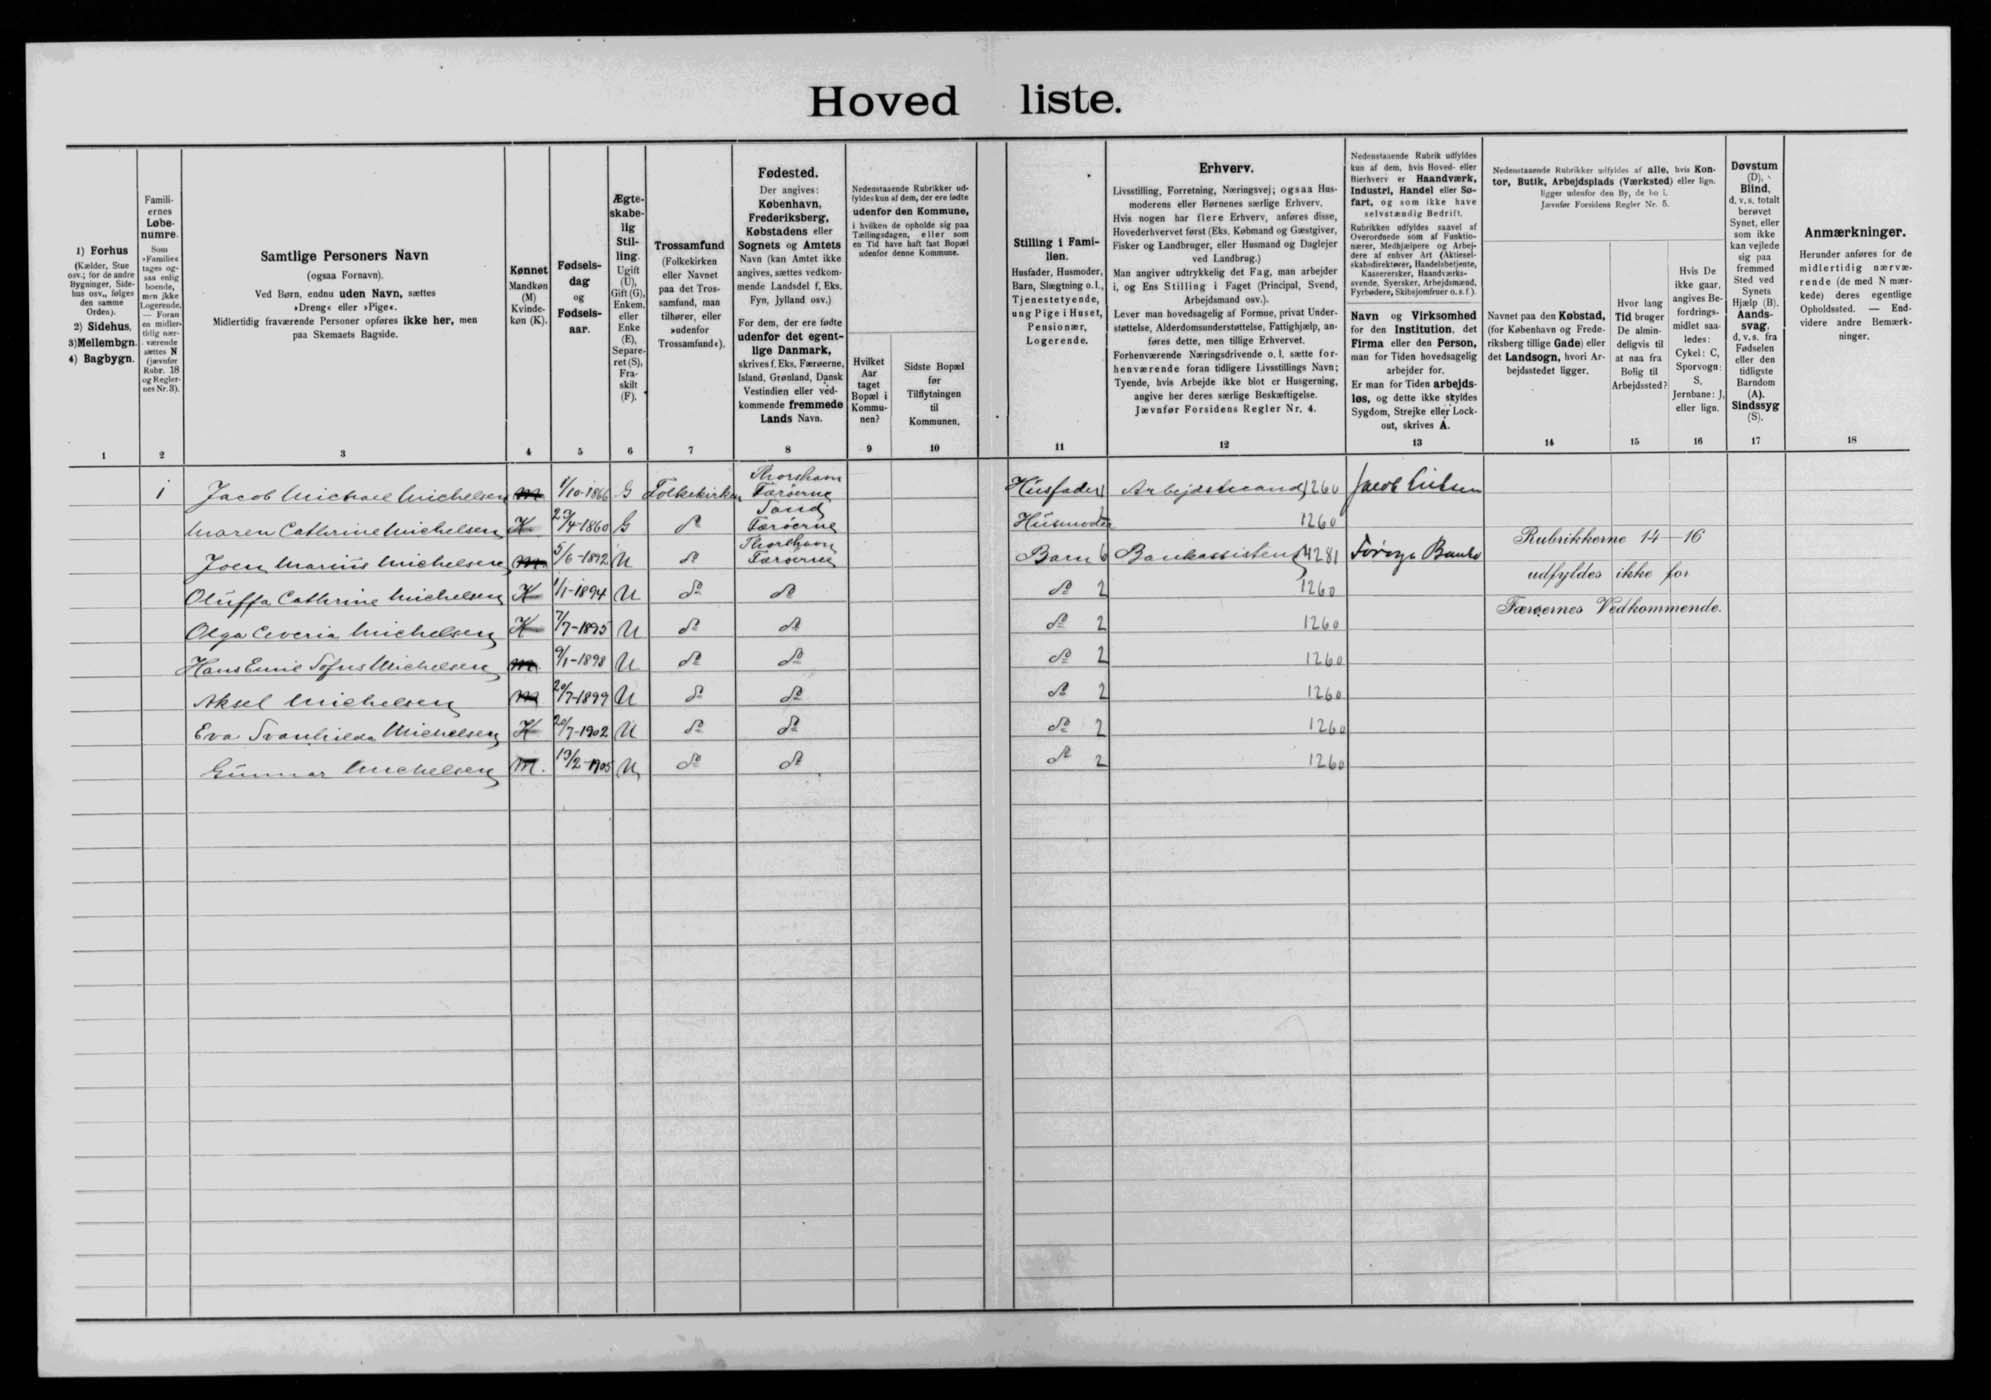 Hoved liste.
1) Forhus
(Kælder, Stue
osv.; for de andre
Bygninger, Side-
hus osv., følges
den samme
Orden).
2) Sidehus,
3) Mellembgn.
4) Bagbygn.
1
Famili-
ernes
Løbe-
numre.
Som
»Familie«
tages og-
saa enlig
boende,
men ikke
Logerende,
— Foran
en midler-
tidig nær-
værende
sættes N
(jævnfør
Rubr. 18
og Regler-
nes Nr. 3).
2
Samtlige Personers Navn
(ogsaa Fornavn).
Ved Børn, endnu uden Navn, sættes
»Dreng« eller »Pige«.
Midlertidig fraværende Personer opføres ikke her, men
paa Skemaets Bagside.
3
Kønnet
Mandkøn
(M)
Kvinde-
køn (K).
4
Fødsels-
dag
og
Fødsels-
aar.
5
Ægte-
skabe-
lig
Stil-
ling.
Ugift
(U),
Gift (G),
Enkem.
eller
Enke
(E),
Separe-
ret (S),
Fra-
skilt
(F).
6
Trossamfund
(Folkekirken
eller Navnet
paa det Tros-
samfund, man
tilhører, eller
»udenfor
Trossamfund«).
7
Fødested.
Der angives:
København,
Frederiksberg,
Købstadens eller
Sognets og Amtets
Navn (kan Amtet ikke
angives, sættes vedkom-
mende Landsdel f. Eks.
Fyn, Jylland osv.)
For dem, der ere fødte
udenfor det egent-
lige Danmark,
skrives f. Eks. Færøerne,
Island, Grønland, Dansk
Vestindien eller ved-
kommende fremmede
Lands Navn.
8
Nedenstaaende Rubrikker ud-
fyldes kun af dem, der ere fødte
udenfor den Kommune,
i hvilken de opholde sig paa
Tællingsdagen, eller som
en Tid have haft fast Bopæl
udenfor denne Kommune.
Hvilket
Aar
taget
Bopæl i
Kommu-
nen?
9
Sidste Bopæl
før
Tilflytningen
til
Kommunen.
10
Stilling i Fami-
lien.
Husfader, Husmoder,
Barn, Slægtning o. l.,
Tjenestetyende,
ung Pige i Huset,
Pensionær,
Logerende.
11
Erhverv.
Livsstilling, Forretning, Næringsvej; ogsaa Hus-
moderens eller Børnenes særlige Erhverv.
Hvis nogen har flere Erhverv, anføres disse,
Hovederhvervet først (Eks. Købmand og Gæstgiver,
Fisker og Landbruger, eller Husmand og Daglejer
ved Landbrug.)
Man angiver udtrykkelig det Fag, man arbejder
i, og Ens Stilling i Faget (Principal, Svend,
Arbejdsmand osv.).
Lever man hovedsagelig af Formue, privat Under-
støttelse, Alderdomsunderstøttelse, Fattighjælp, an-
føres dette, men tillige Erhvervet.
Forhenværende Næringsdrivende o. l. sætte for-
henværende foran tidligere Livsstillings Navn;
Tyende, hvis Arbejde ikke blot er Husgerning,
angive her deres særlige Beskæftigelse.
Jævnfør Forsidens Regler Nr. 4.
12
Nedenstaaende Rubrik udfyldes
kun af dem, hvis Hoved- eller
Bierhverv er Haandværk,
Industri, Handel eller Sø-
fart, og som ikke have
selvstændig Bedrift.
Rubrikken udfyldes saavel af
Overordnede som af Funktio-
nærer, Medhjælpere og Arbej-
dere af enhver Art (Aktiesel-
skabsdirektører, Handelsbetjente,
Kassererskер, Haandværks-
svende, Syersker, Arbejdsmænd,
Fyrbødere, Skibsjomfruer o. s. f.).
Navn og Virksomhed
for den Institution, det
Firma eller den Person,
man for Tiden hovedsagelig
arbejder for.
Er man for Tiden arbejds-
løs, og dette ikke skyldes
Sygdom, Strejke eller Lock-
out, skrives A.
13
Nedenstaaende Rubrikker udfyldes af alle, hvis Kon-
tor, Butik, Arbejdsplads (Værksted) eller lign.
ligger udenfor den By, de bo i.
Jævnfør Forsidens Regler Nr. 5.
Navnet paa den Købstad,
(for København og Frede-
riksberg tillige Gade) eller
det Landsogn, hvori Ar-
bejdsstedet ligger.
14
Hvor lang
Tid bruger
De almin-
deligvis til
at naa fra
Bolig til
Arbejdssted?
15
Hvis De
ikke gaar,
angives Be-
fordrings-
midlet saa-
ledes:
Cykel: C,
Sporvogn:
S,
Jernbane: J,
eller lign.
16
Døvstum
(D),
Blind,
d. v. s. totalt
berøvet
Synet, eller
som ikke
kan vejlede
sig paa
fremmed
Sted ved
Synets
Hjælp (B).
Aands-
svag,
d. v. s. fra
Fødselen
eller den
tidligste
Barndom
(A).
Sindssyg
(S).
17
Anmærkninger.
Herunder anføres for de
midlertidig nærvæ-
rende (de med N mær-
kede) deres egentlige
Opholdssted. — End-
videre andre Bemærk-
ninger.
18
1 Jacob Michael Michelsen M 1/10-1866 G Folkekirken Thorshavn Færøerne Husfader 1 Arbejdsmand 1260 Jacob
Maren Cathrine Michelsen K 23/4-1860 G do Sand Færøerne Husmoder 1260
Joen Marius Michelsen M 5/6-1892 U do Thorshavn Færøerne Barn 6 Bankassistent 4281 Førøya Banki
Oluffa Cathrine Michelsen K 1/1-1894 U do do do 2 1260
Olga Ceveria Michelsen K 7/7-1895 U do do do 2 1260
Hans Emil Sofus Michelsen M 9/1-1898 U do do do 2 1260
Aksel Michelsen M 20/7-1899 U do do do 2 1260
Eva Svanhilda Michelsen K 20/7-1902 U do do do 2 1260
Gunnar Michelsen M. 19/2-1905 U do do do 2 1260
Rubrikkerne 14–16
udfyldes ikke for
Færøernes Vedkommende.